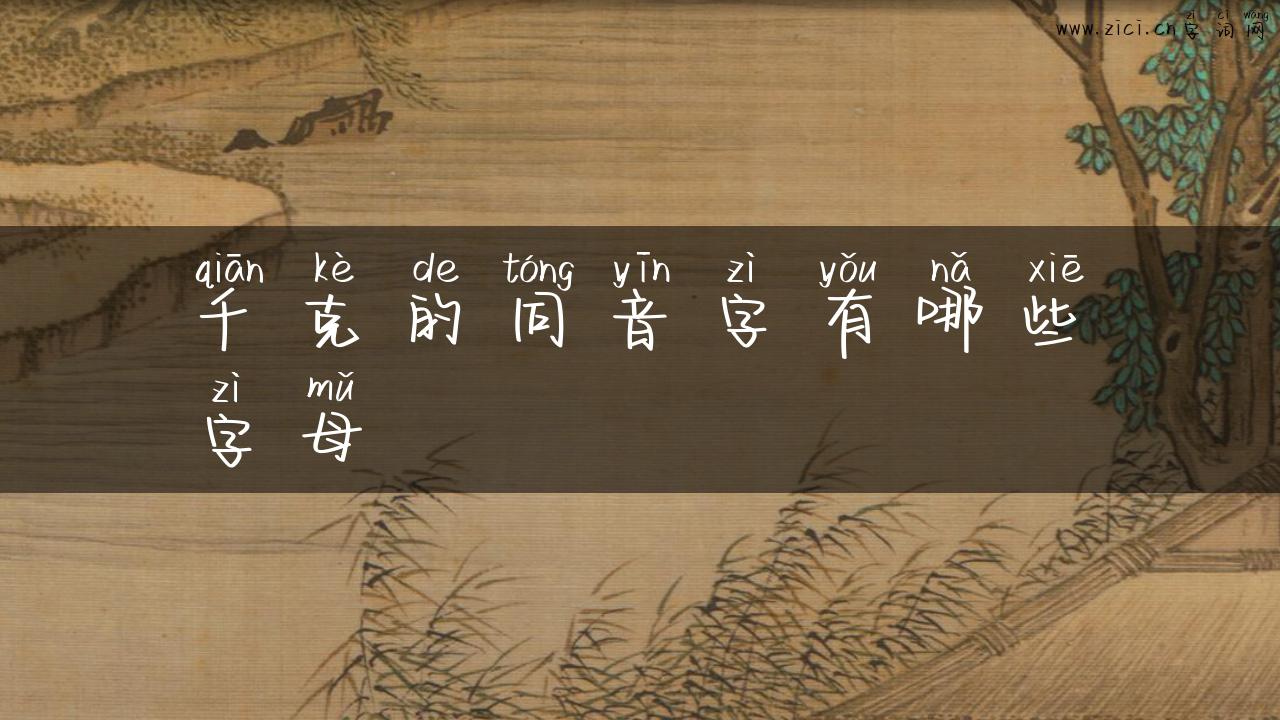 zì cí wǎng
www.zici.cn 字词网
qiān kè de tóng yīn zì yǒu nǎ xiē
千克的同音字有哪些
zì mǔ
字母